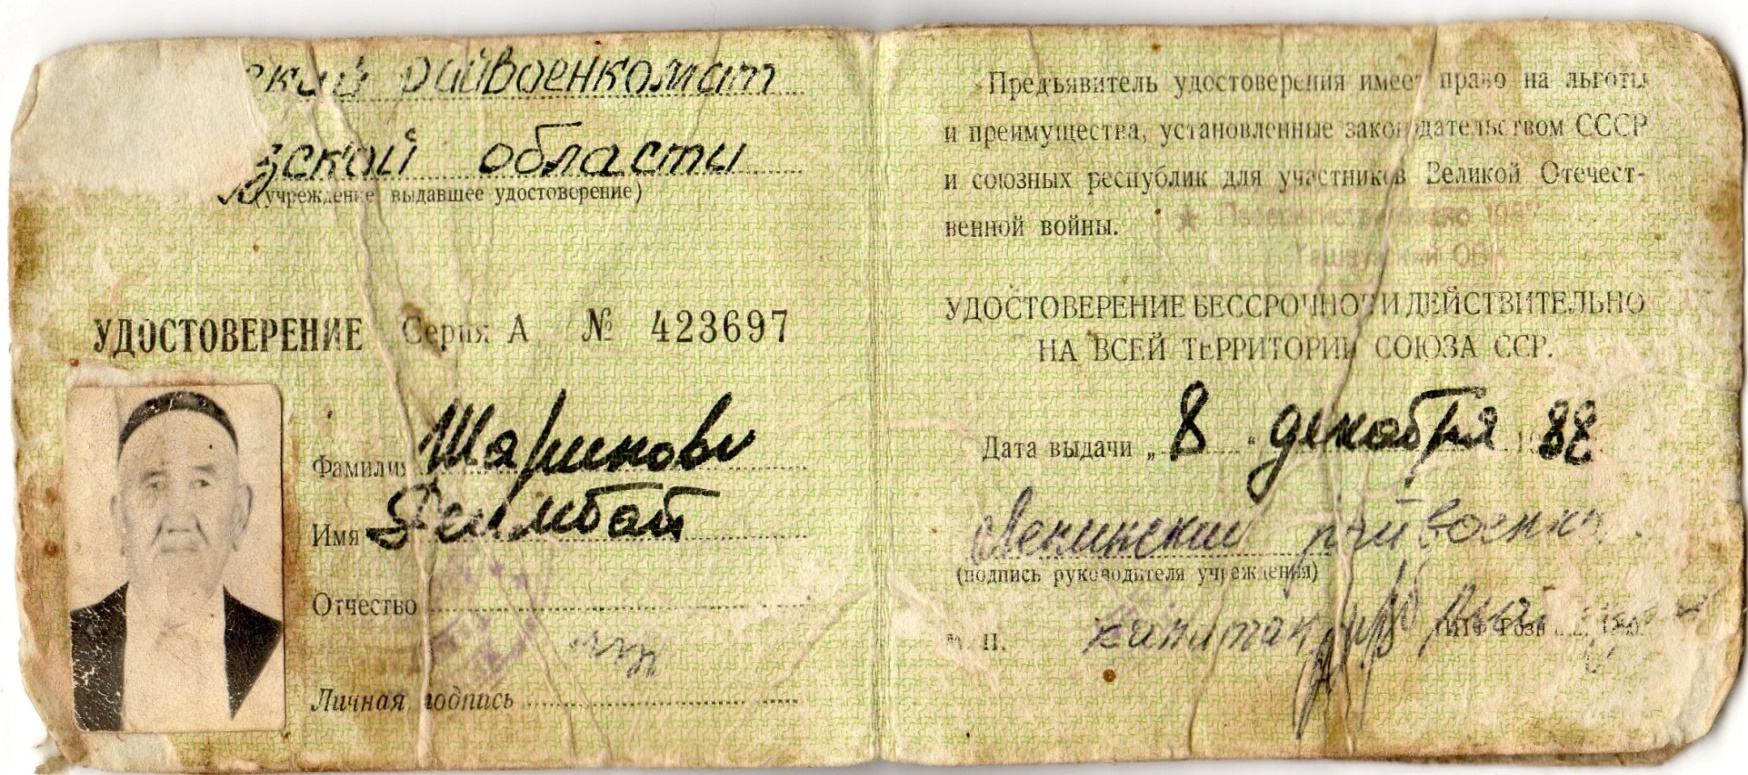 ский райвоенкомат
зской области
(учреждение выдавшее удостоверение)
УДОСТОВЕРЕНИЕ Серия А № 423697
Фамилия
Имя
Отчество
Личная подпись
Предъявитель удостоверения имеет право на льготы
и преимущества, установленные законодательством СССР
и союзных республик для участников Великой Отечест-
венной войны.
УДОСТОВЕРЕНИЕ БЕССРОЧНО И ДЕЙСТВИТЕЛЬНО
НА ВСЕЙ ТЕРРИТОРИИ СОЮЗА ССР.
Дата выдачи „ 8 " декабря 19
Ленинский
(подпись руководителя учреждения)
М. П. капитан